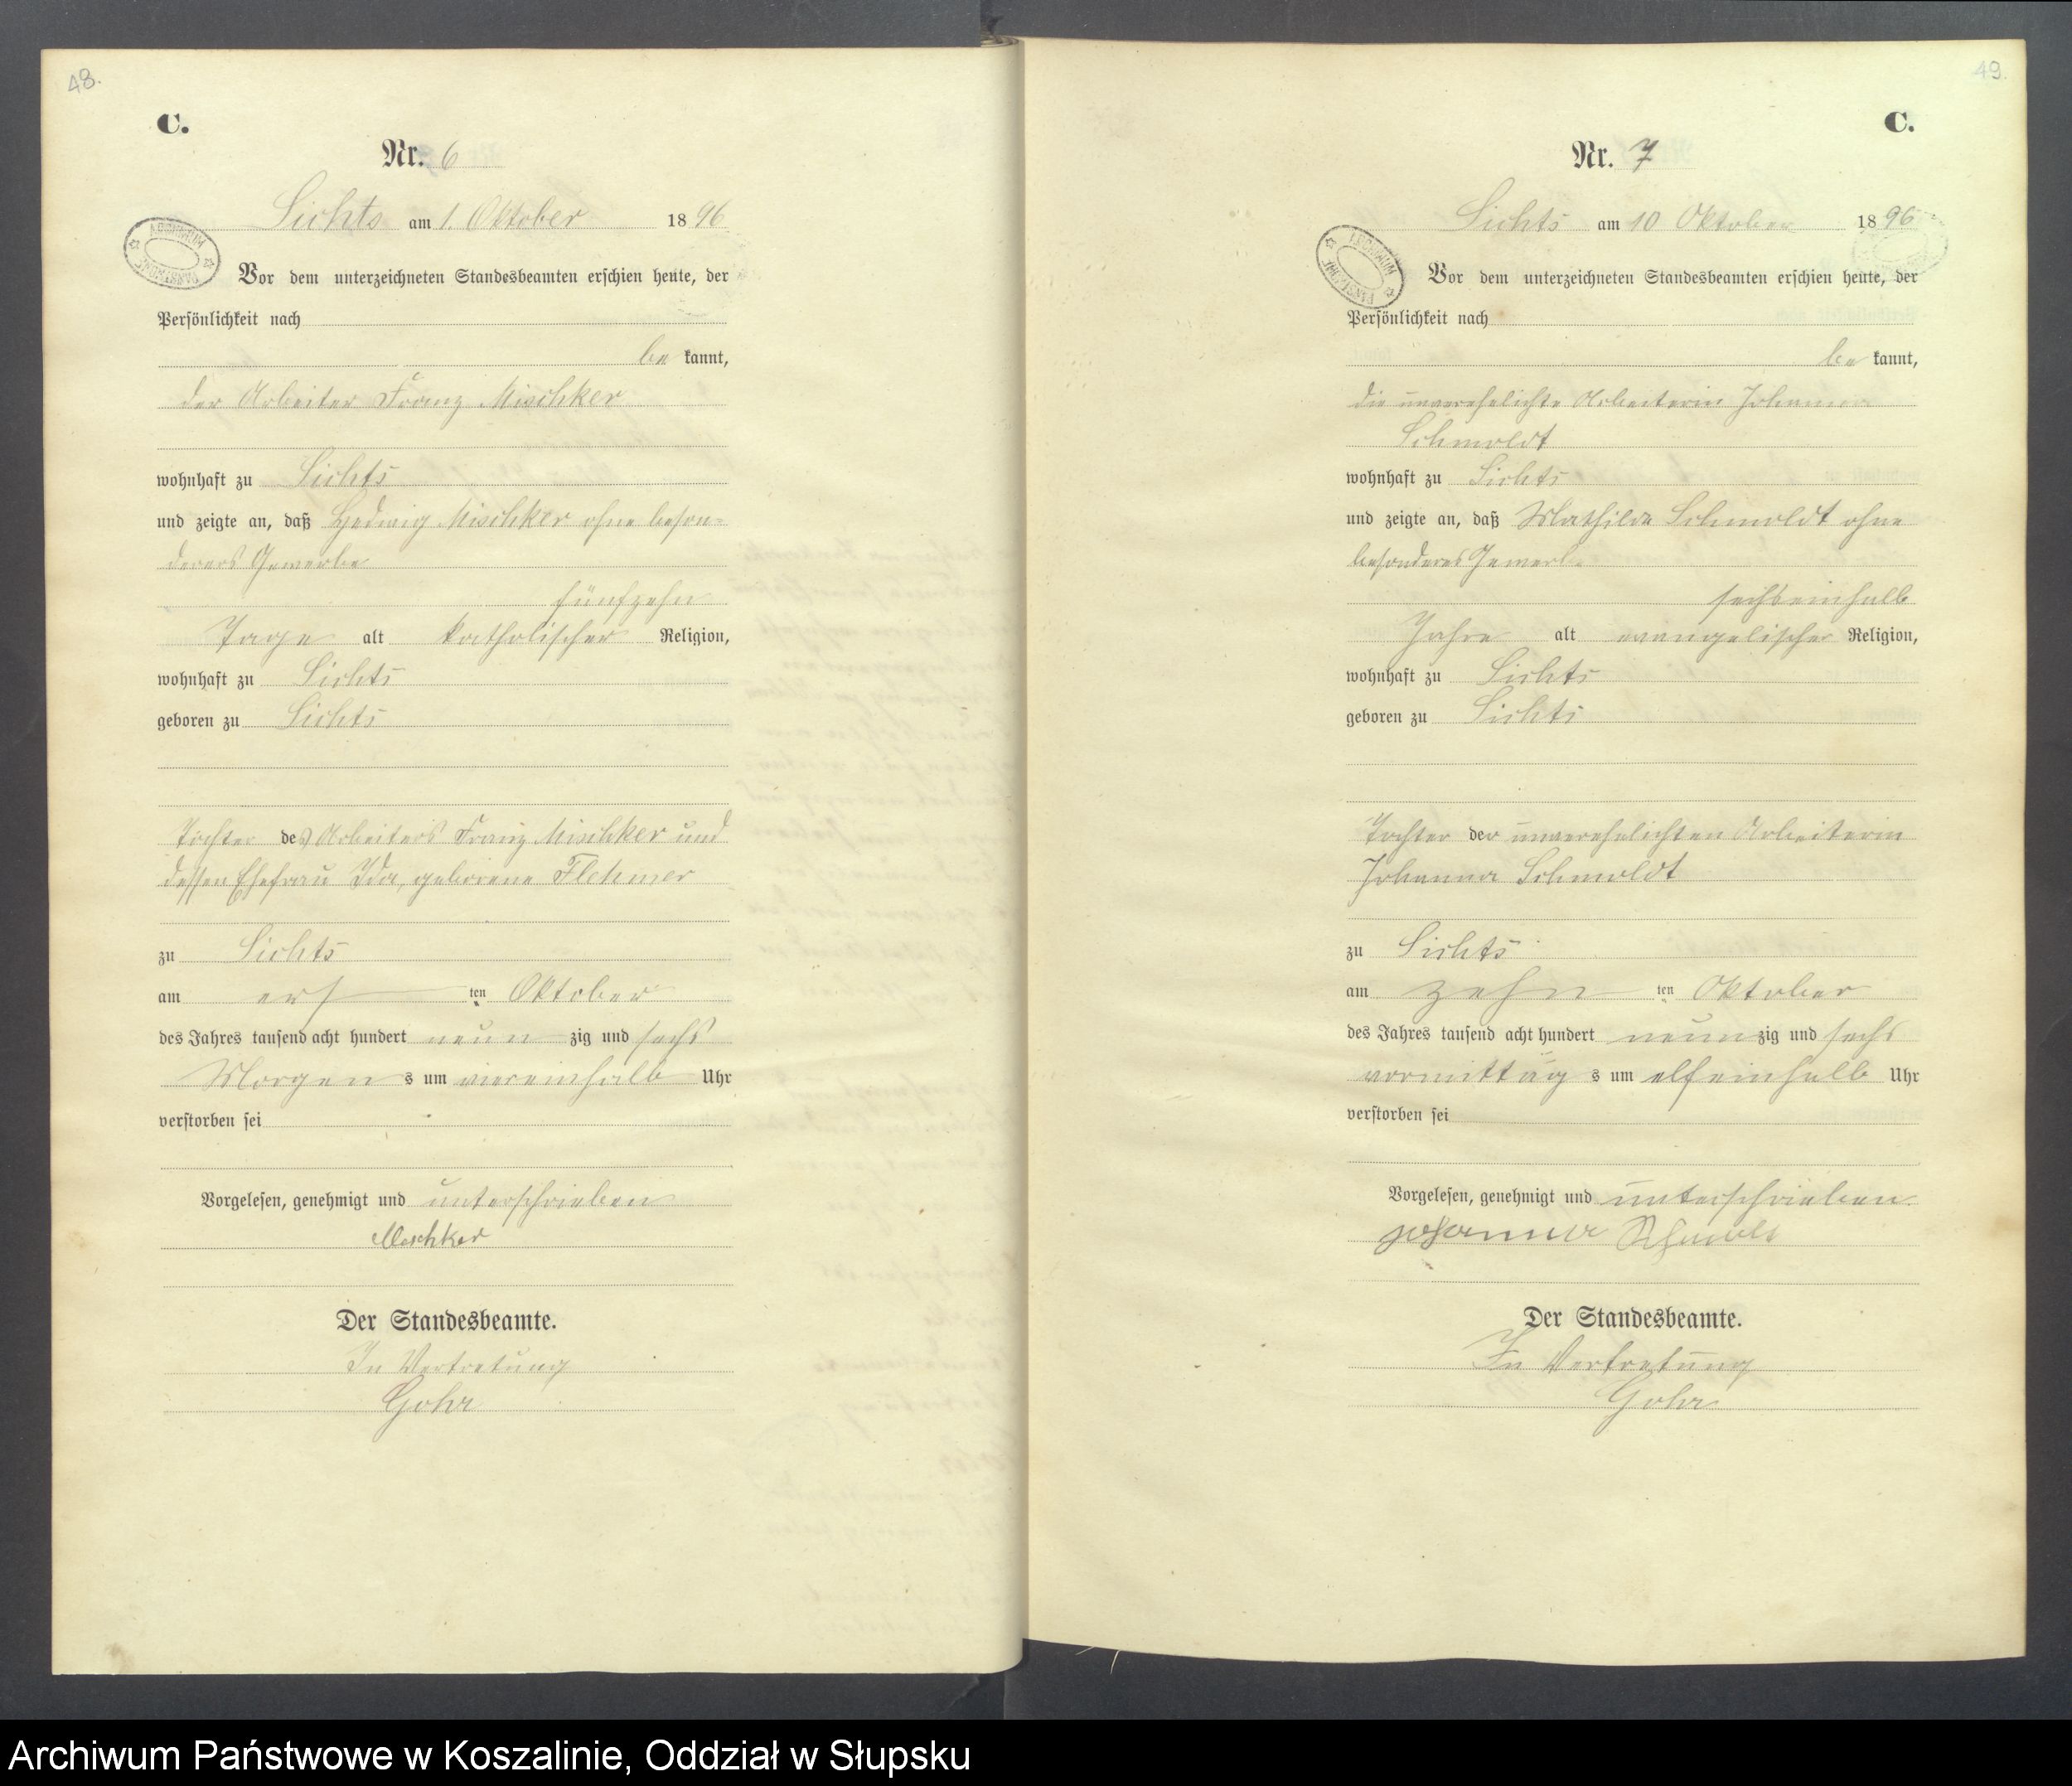 48.
C.
Nr. 6
Lichts am 1. Oktober 1896
Vor dem unterzeichneten Standesbeamten erschien heute, der
Persönlichkeit nach
be kannt,
der Arbeiter Franz Mischker
wohnhaft zu Lichts
und zeigte an, daß Hedwig Mischker ohne beson-
deres Gewerbe
fünfzehn
Tage alt katholischer Religion,
wohnhaft zu Lichts
geboren zu Lichts
Tochter des Arbeiters Franz Mischker und
dessen Ehefrau Ida, geborene Flehmer
zu Lichts
am ersten Oktober
des Jahres tausend acht hundert neunzig und sechs
Morgens um viereinhalb Uhr
verstorben sei
Vorgelesen, genehmigt und unterschrieben
Mischker
Der Standesbeamte.
In Vertretung
Gohr
49.
C.
Nr. 7
Lichts am 10 Oktober 1896
Vor dem unterzeichneten Standesbeamten erschien heute, der
Persönlichkeit nach
be kannt,
die unverehelichte Arbeiterin Johanna
Schmoldt
wohnhaft zu Lichts
und zeigte an, daß Mathilde Schmoldt ohne
besonderes Gewerbe
sechseinhalb
Jahre alt evangelischer Religion,
wohnhaft zu Lichts
geboren zu Lichts
Tochter der unverehelichten Arbeiterin
Johanna Schmoldt
zu Lichts
am zehnten Oktober
des Jahres tausend acht hundert neunzig und sechs
vormittags um elfeinhalb Uhr
verstorben sei
Vorgelesen, genehmigt und unterschrieben
Johanna
Der Standesbeamte.
In Vertretung
Gohr
Archiwum Państwowe w Koszalinie, Oddział w Słupsku